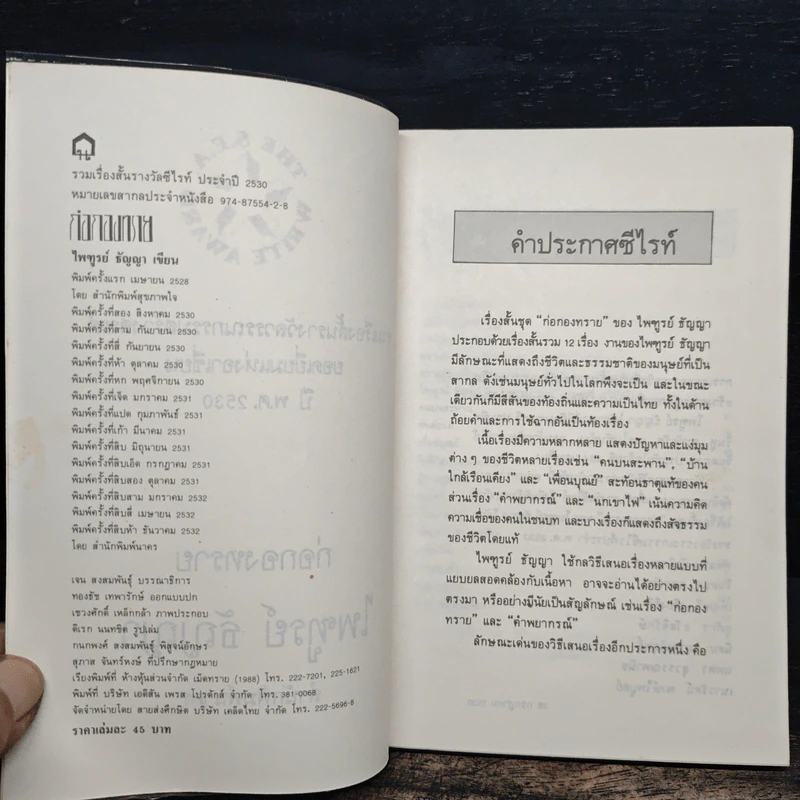 รวมเรื่องสั้นรางวัลซีไรท์ ประจำปี 2530
หมายเลขสากลประจำหนังสือ 974-87554-2-8
ก่อกองทราย
ไพฑูรย์ ธัญญา เขียน
พิมพ์ครั้งแรก เมษายน 2528
โดย สำนักพิมพ์สุขภาพใจ
พิมพ์ครั้งที่สอง สิงหาคม 2530
พิมพ์ครั้งที่สาม กันยายน 2530
พิมพ์ครั้งที่สี่ กันยายน 2530
พิมพ์ครั้งที่ห้า ตุลาคม 2530
พิมพ์ครั้งที่หก พฤศจิกายน 2530
พิมพ์ครั้งที่เจ็ด มกราคม 2531
พิมพ์ครั้งที่แปด กุมภาพันธ์ 2531
พิมพ์ครั้งที่เก้า มีนาคม 2531
พิมพ์ครั้งที่สิบ มิถุนายน 2531
พิมพ์ครั้งที่สิบเอ็ด กรกฎาคม 2531
พิมพ์ครั้งที่สิบสอง ตุลาคม 2531
พิมพ์ครั้งที่สิบสาม มกราคม 2532
พิมพ์ครั้งที่สิบสี่ เมษายน 2532
พิมพ์ครั้งที่สิบห้า ธันวาคม 2532
โดย สำนักพิมพ์นาคร
เจน สงสมพันธุ์ บรรณาธิการ
ทองธัช เทพารักษ์ ออกแบบปก
เชวงศักดิ์ เหลิกกล้า ภาพประกอบ
ดิเรก นนทชิต รูปเล่ม
กนกพงศ์ สงสมพันธุ์ พิสูจน์อักษร
สุภาส จันทร์หงษ์ ที่ปรึกษากฎหมาย
เรียงพิมพ์ที่ ห้างหุ้นส่วนจำกัด เม็ดทราย (1988) โทร. 222-7201, 225-1621
พิมพ์ที่ บริษัท เอดิสัน เพรส โปรดักส์ จำกัด โทร. 381-0068
จัดจำหน่ายโดย สายส่งศึกษิต บริษัท เคล็ดไทย จำกัด โทร. 222-5698-8
ราคาเล่มละ 45 บาท
คำประกาศซีไรท์
เรื่องสั้นชุด "ก่อกองทราย" ของ ไพฑูรย์ ธัญญา
ประกอบด้วยเรื่องสั้นรวม 12 เรื่อง งานของไพฑูรย์ ธัญญา
มีลักษณะที่แสดงถึงชีวิตและธรรมชาติของมนุษย์ที่เป็น
สากล ดังเช่นมนุษย์ทั่วไปในโลกพึงจะเป็น และในขณะ
เดียวกันก็มีสีสันของท้องถิ่นและความเป็นไทย ทั้งในด้าน
ถ้อยคำและการใช้ฉากอันเป็นท้องเรื่อง
เนื้อเรื่องมีความหลากหลาย แสดงปัญหาและแง่มุม
ต่าง ๆ ของชีวิตหลายเรื่องเช่น "คนบนสะพาน", "บ้าน
ใกล้เรือนเคียง" และ "เพื่อนบุณย์" สะท้อนธาตุแท้ของคน
ส่วนเรื่อง "คำพยากรณ์" และ "นกเขาไฟ" เน้นความคิด
ความเชื่อของคนในชนบท และบางเรื่องก็แสดงถึงสัจธรรม
ของชีวิตโดยแท้
ไพฑูรย์ ธัญญา ใช้กลวิธีเสนอเรื่องหลายแบบที่
แยบยลสอดคล้องกับเนื้อหา อาจจะอ่านได้อย่างตรงไป
ตรงมา หรืออย่างมีนัยเป็นสัญลักษณ์ เช่นเรื่อง "ก่อกอง
ทราย" และ "คำพยากรณ์"
ลักษณะเด่นของวิธีเสนอเรื่องอีกประการหนึ่ง คือ